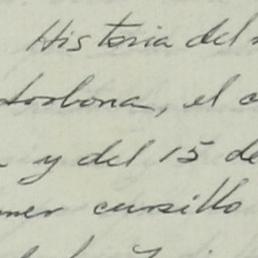 Historia del
dosbona, el
y del 15 de
mer cursillo